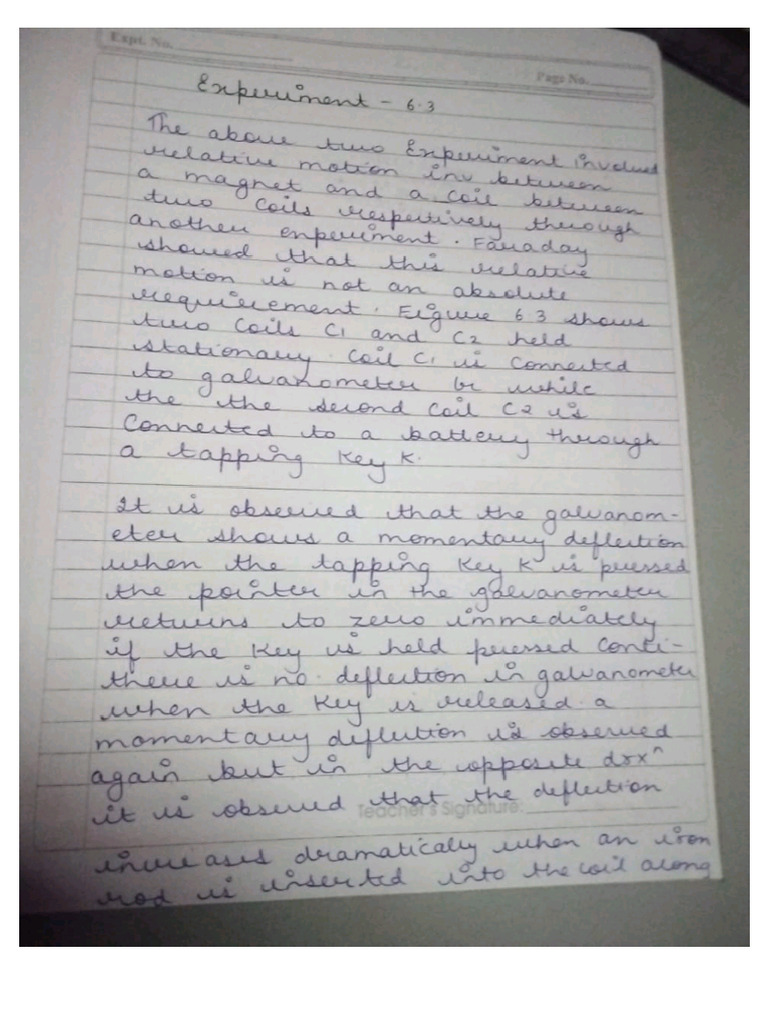 Expt. No.
Page No.
Experiment - 6.3
The above two Experiment involved
relative motion inv between
a magnet and a coil between
two coils respectively through
another experiment. Faraday
showed that this relative
motion is not an absolute
requirement. Figure 6.3 shows
two coils C1 and C2 held
stationary. coil C1 is connected
to galvanometer while
the the second coil C2 is
Connected to a battery through
a tapping key K.
It is observed that the galvanom-
eter shows a momentary deflection
when the tapping key K is pressed
the pointer in the galvanometer
returns to zero immediately
if the key is held pressed conti-
there is no deflection in galvanometer
when the key is released a
momentary deflection is observed
again but in the opposite drxn
it is observed that the deflection
Teacher's Signature:
increases dramatically when an iron
rod is inserted into the coil along